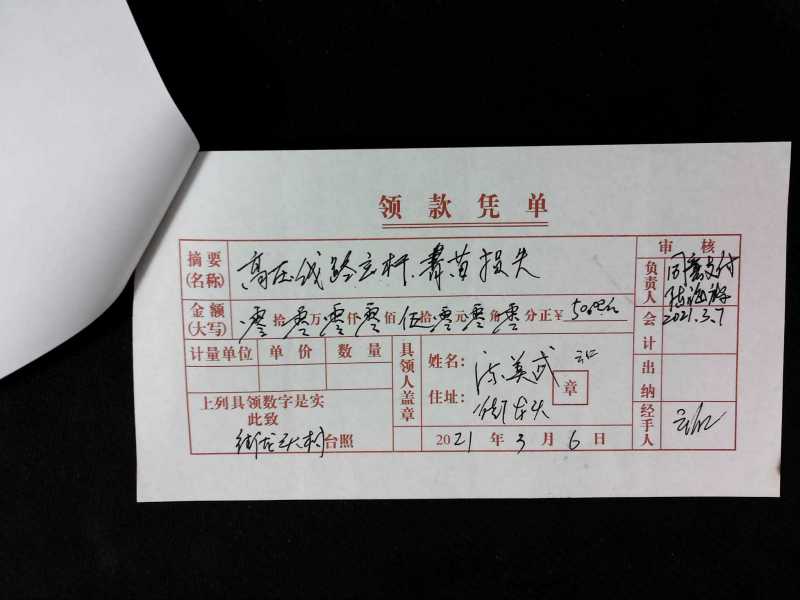 领款凭单
摘要(名称) 高压线路立杆.青苗损失
审核
负责人 同意支付
金额(大写) 零拾零万零仟零佰伍拾零元零角零分正¥50.00元
会计 2021.3.7
计量单位 单价 数量
具领人盖章
姓名: 陈美武
住址: 街东头
章
出纳
上列具领数字是实
此致
台照
2021年3月6日
经手人